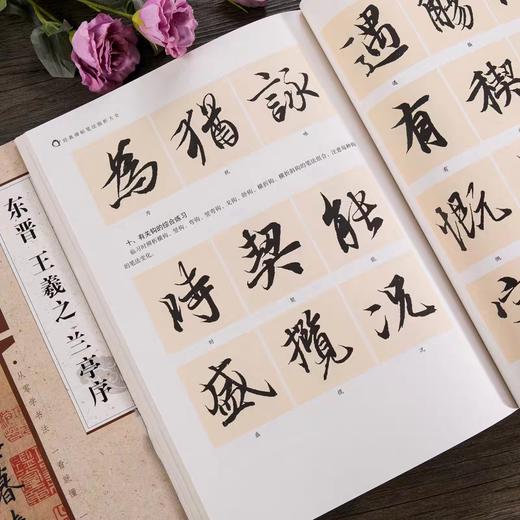 东晋 王羲之 兰亭序
从零学书法 一看就懂
经典碑帖笔法临析大全
為 猶 詠
为 犹 咏
十、有关钩的综合练习
临习时辨析横钩、竖钩、弯钩、竖弯钩、戈钩、卧钩、横折钩、横折斜钩的笔法组合，注意每种钩
的笔法变化。
時 契 能
时 契 能
盛 攬 况
盛 揽 况
遇 觴
遇 觞
有 稧
有
慨
慨